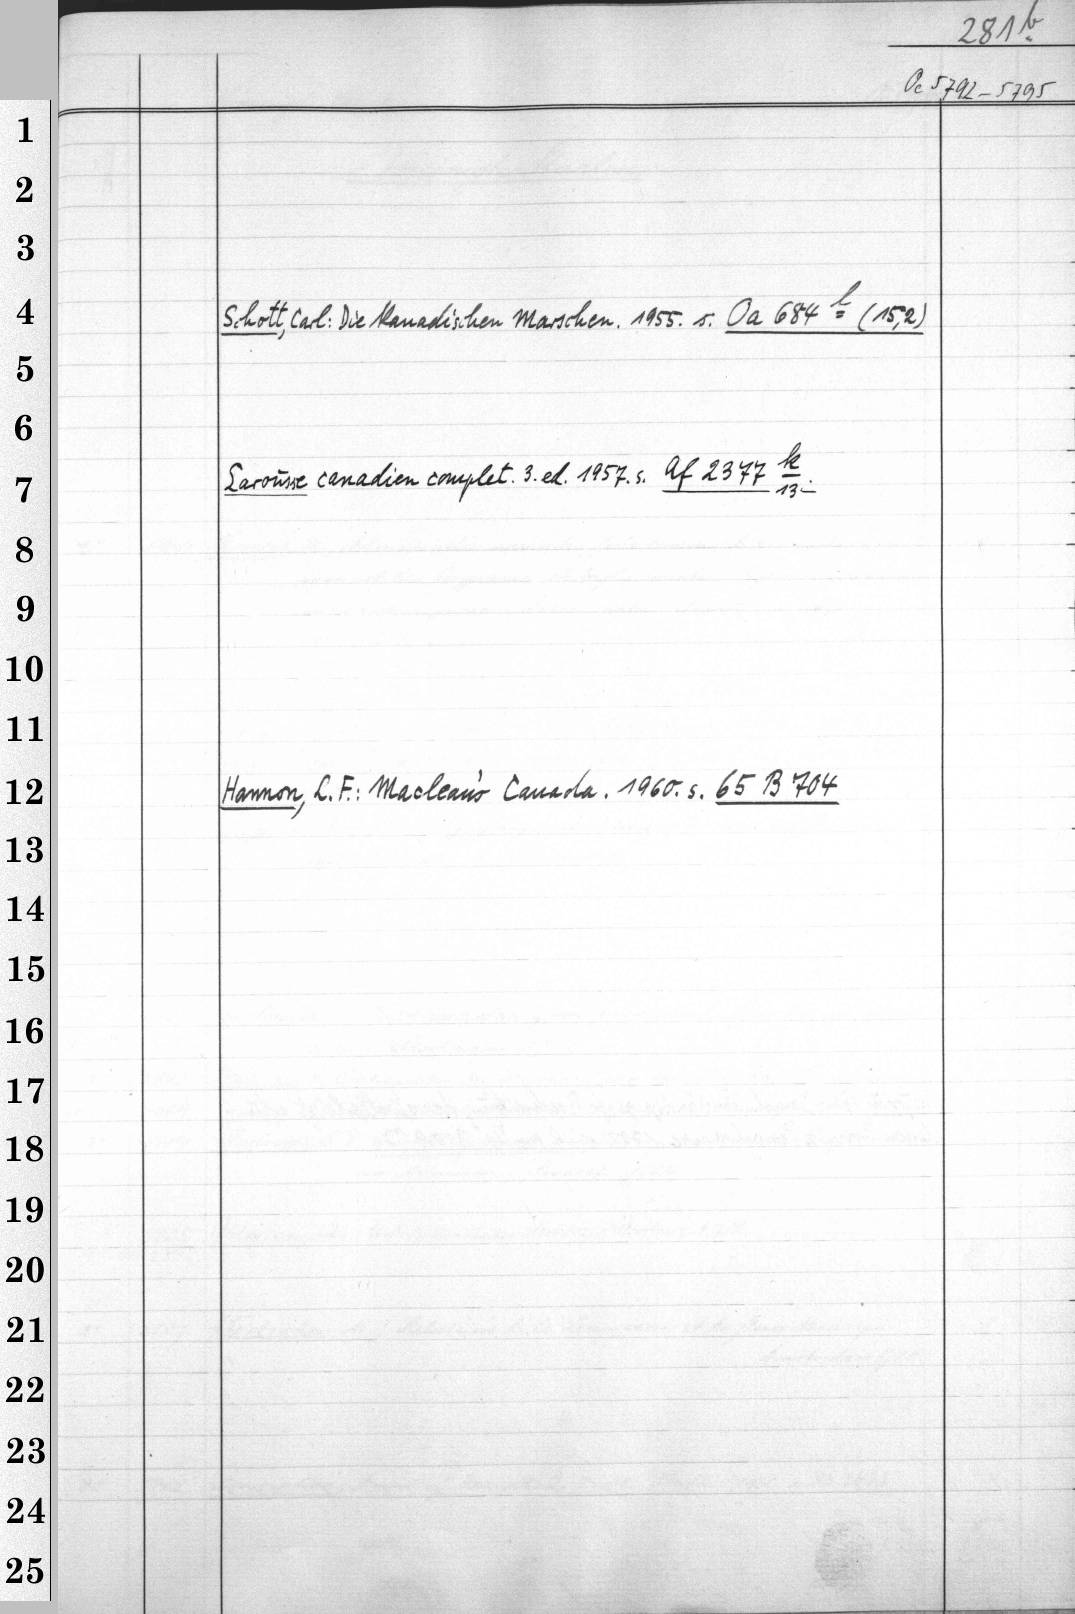 281b
Oc 5792-5795
1
2
3
4 Schott, Carl: Die kanadischen Marschen. 1955. s. Oa 684 l (15,2)
5
6
7 Larousse canadien complet. 3. ed. 1957. s. Af 2377 k/13.
8
9
10
11
12 Hannon, L. F.: Maclean's Canada. 1960. s. 65 B 704
13
14
15
16
17
18
19
20
21
22
23
24
25